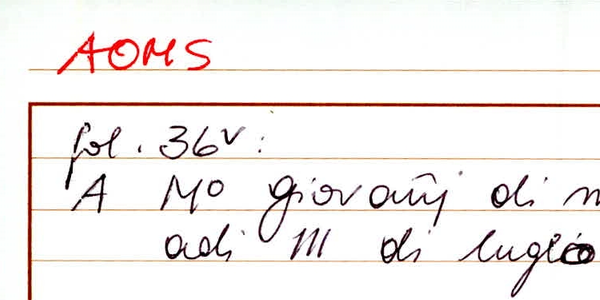 AOMS
fol. 36v:
A Mo giovanj di
adi III di luglio